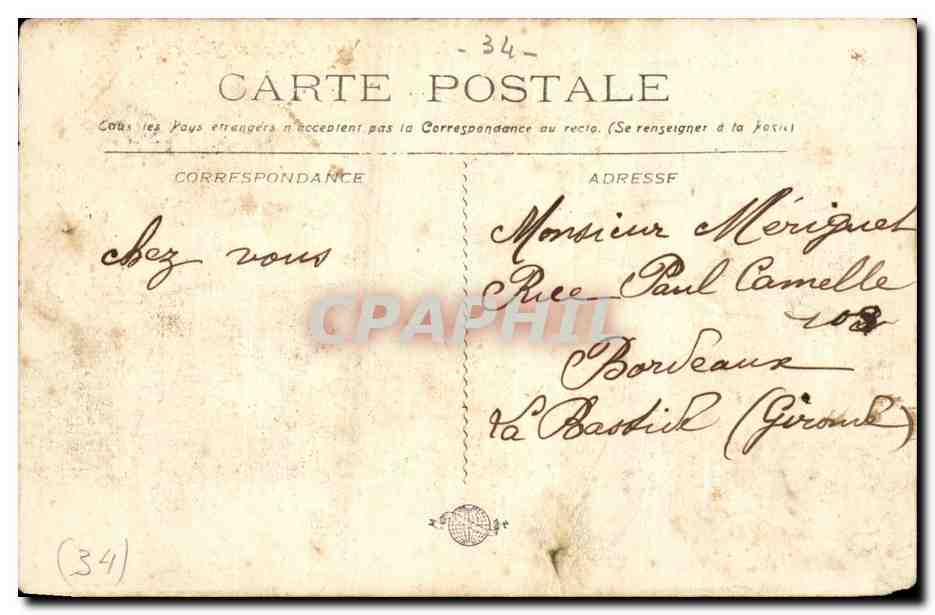 - 34 -
CARTE POSTALE
Tous les Pays étrangers n'acceptent pas la Correspondance au recto. (Se renseigner à la Poste)
CORRESPONDANCE
ADRESSE
chez vous
Monsieur Mériguet
Rue Paul Camelle
Bordeaux
La Bastide (Gironde)
CPAPHIL
(34)